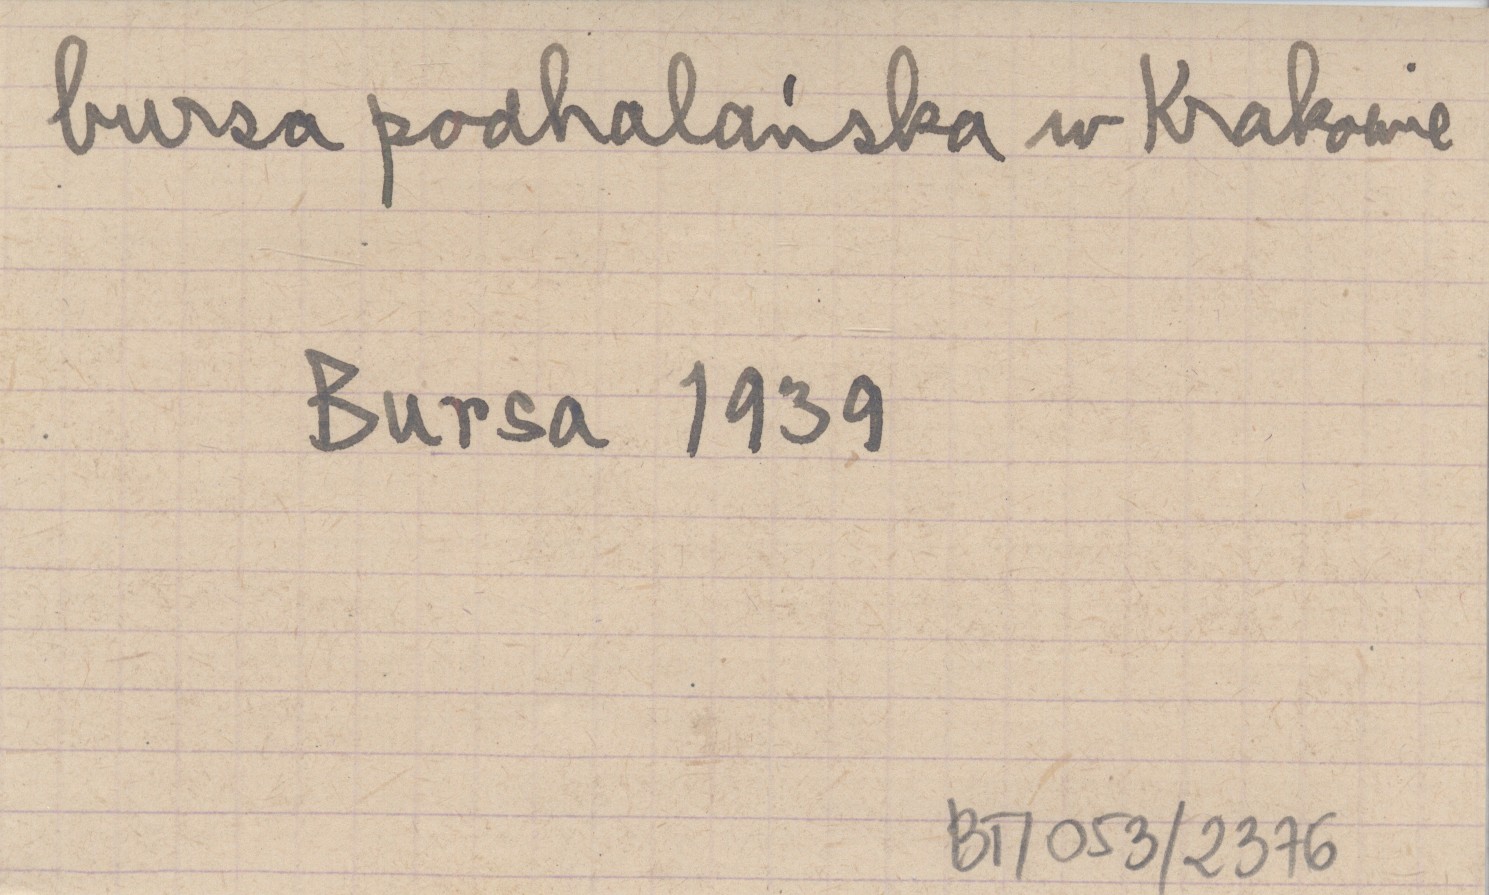 bursa podhalańska w Krakowie
Bursa 1939
BT/053/2376